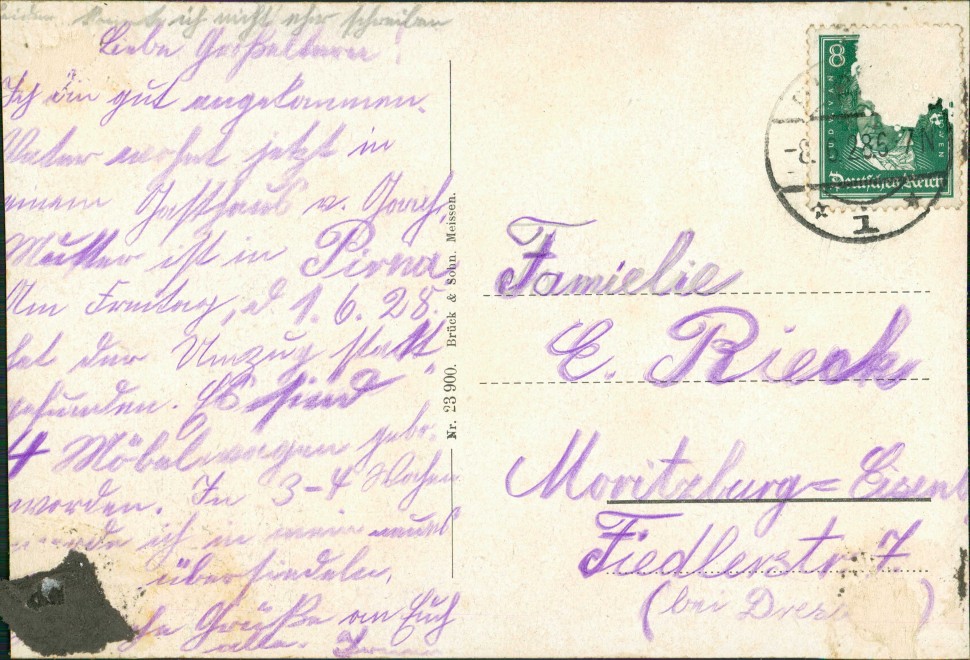 ich nicht eher schreiben
Liebe Großeltern!
Ich bin gut angekommen.
Vater wohnt jetzt in
einem Gasthaus v.
Mutter ist in Pirna
Am Freitag, d 1. 6. 28.
hat der Umzug statt
gefunden. Es sind
4 Möbelwagen gebr.
worden. In 3-4 Wochen
werde ich in mein neues
übersiedeln.
Grüße an Euch
alle.
Nr. 23 900. Brück & Sohn. Meissen.
8
LUDW. VAN
Deutsches Reich
-8. 28.6-7N
1
Familie
E. Rieck
Moritzburg=Eisenb
Fiedlerstr. 7
(bei Dresd )